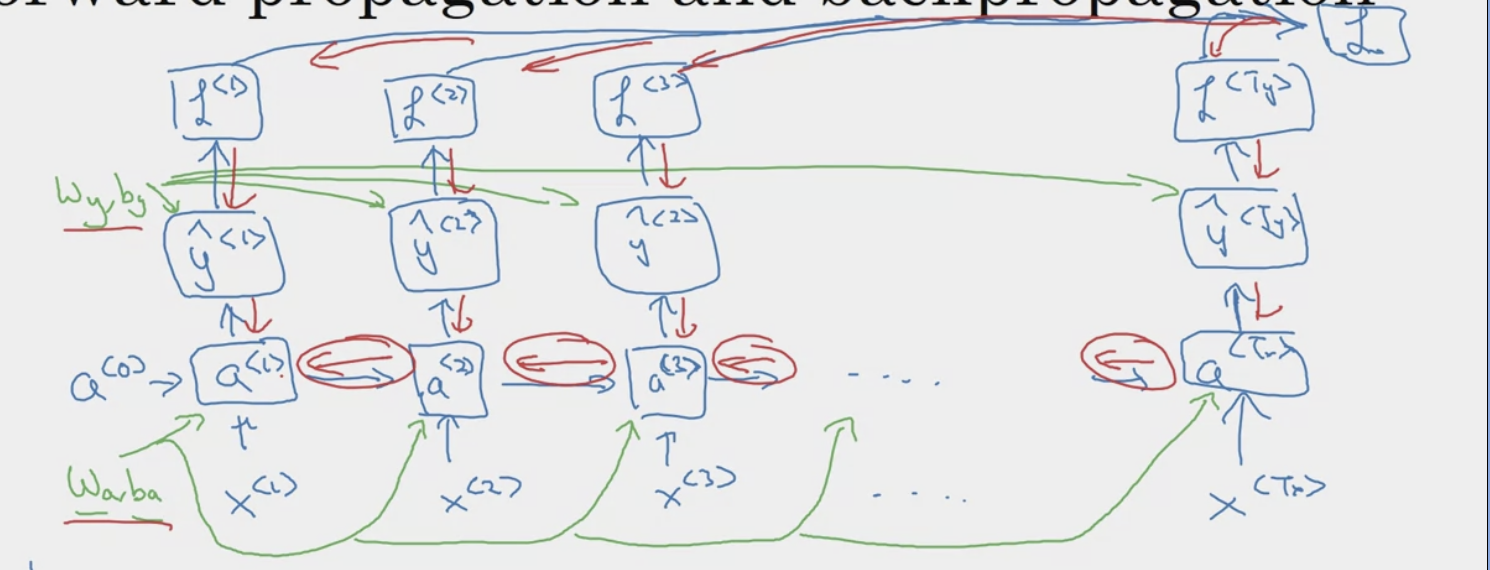 forward propagation and backpropagation
ℒ
ℒ<1> ℒ<2> ℒ<3> ℒ<Ty>
Wy, by
ŷ<1> ŷ<2> ŷ<2> ŷ<Ty>
a<0> → a<1> a<2> a<3> .... a<Tx>
Wa, ba
x<1> x<2> x<3> .... x<Tx>